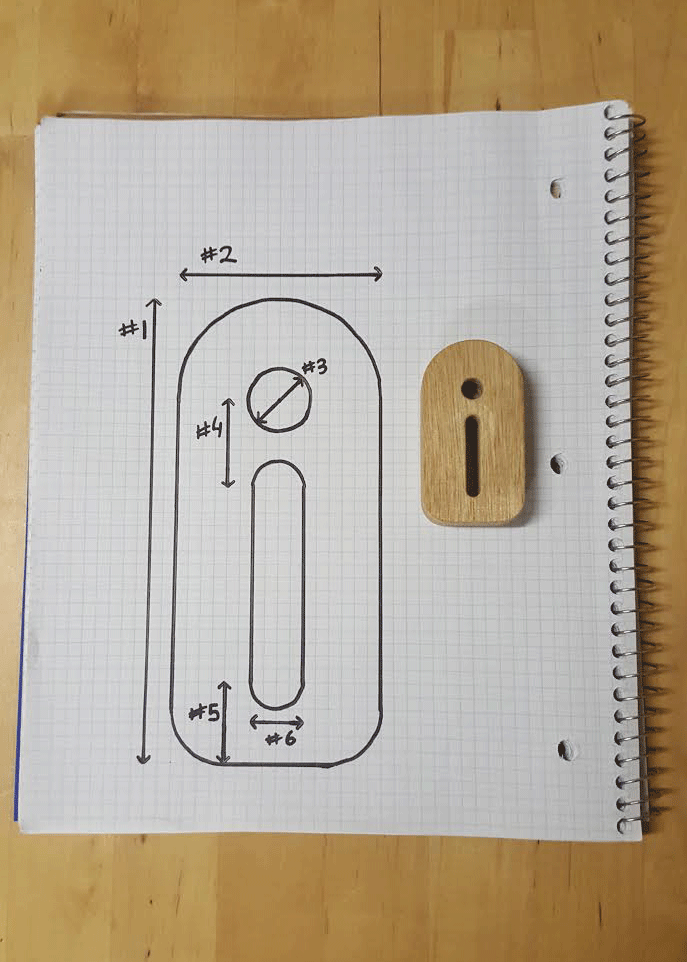 #2
#1
#3
#4
#5
#6